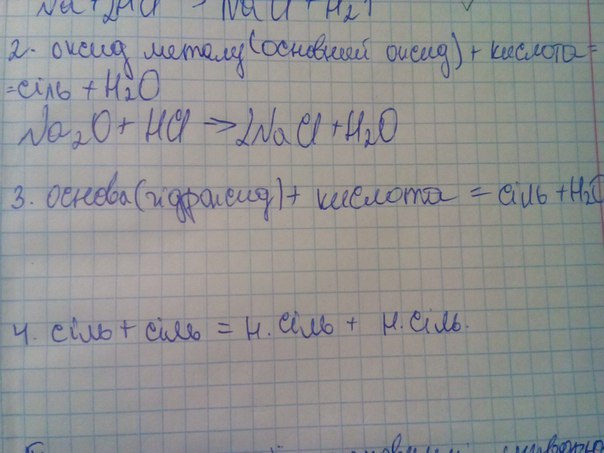 Na + 2HCl → NaCl + H₂↑
2. оксид металу (основний оксид) + кислота =
= сіль + H₂O
Na₂O + HCl → 2NaCl + H₂O
3. основа (гідроксид) + кислота = сіль + H₂O
4. сіль + сіль = н. сіль + н. сіль.